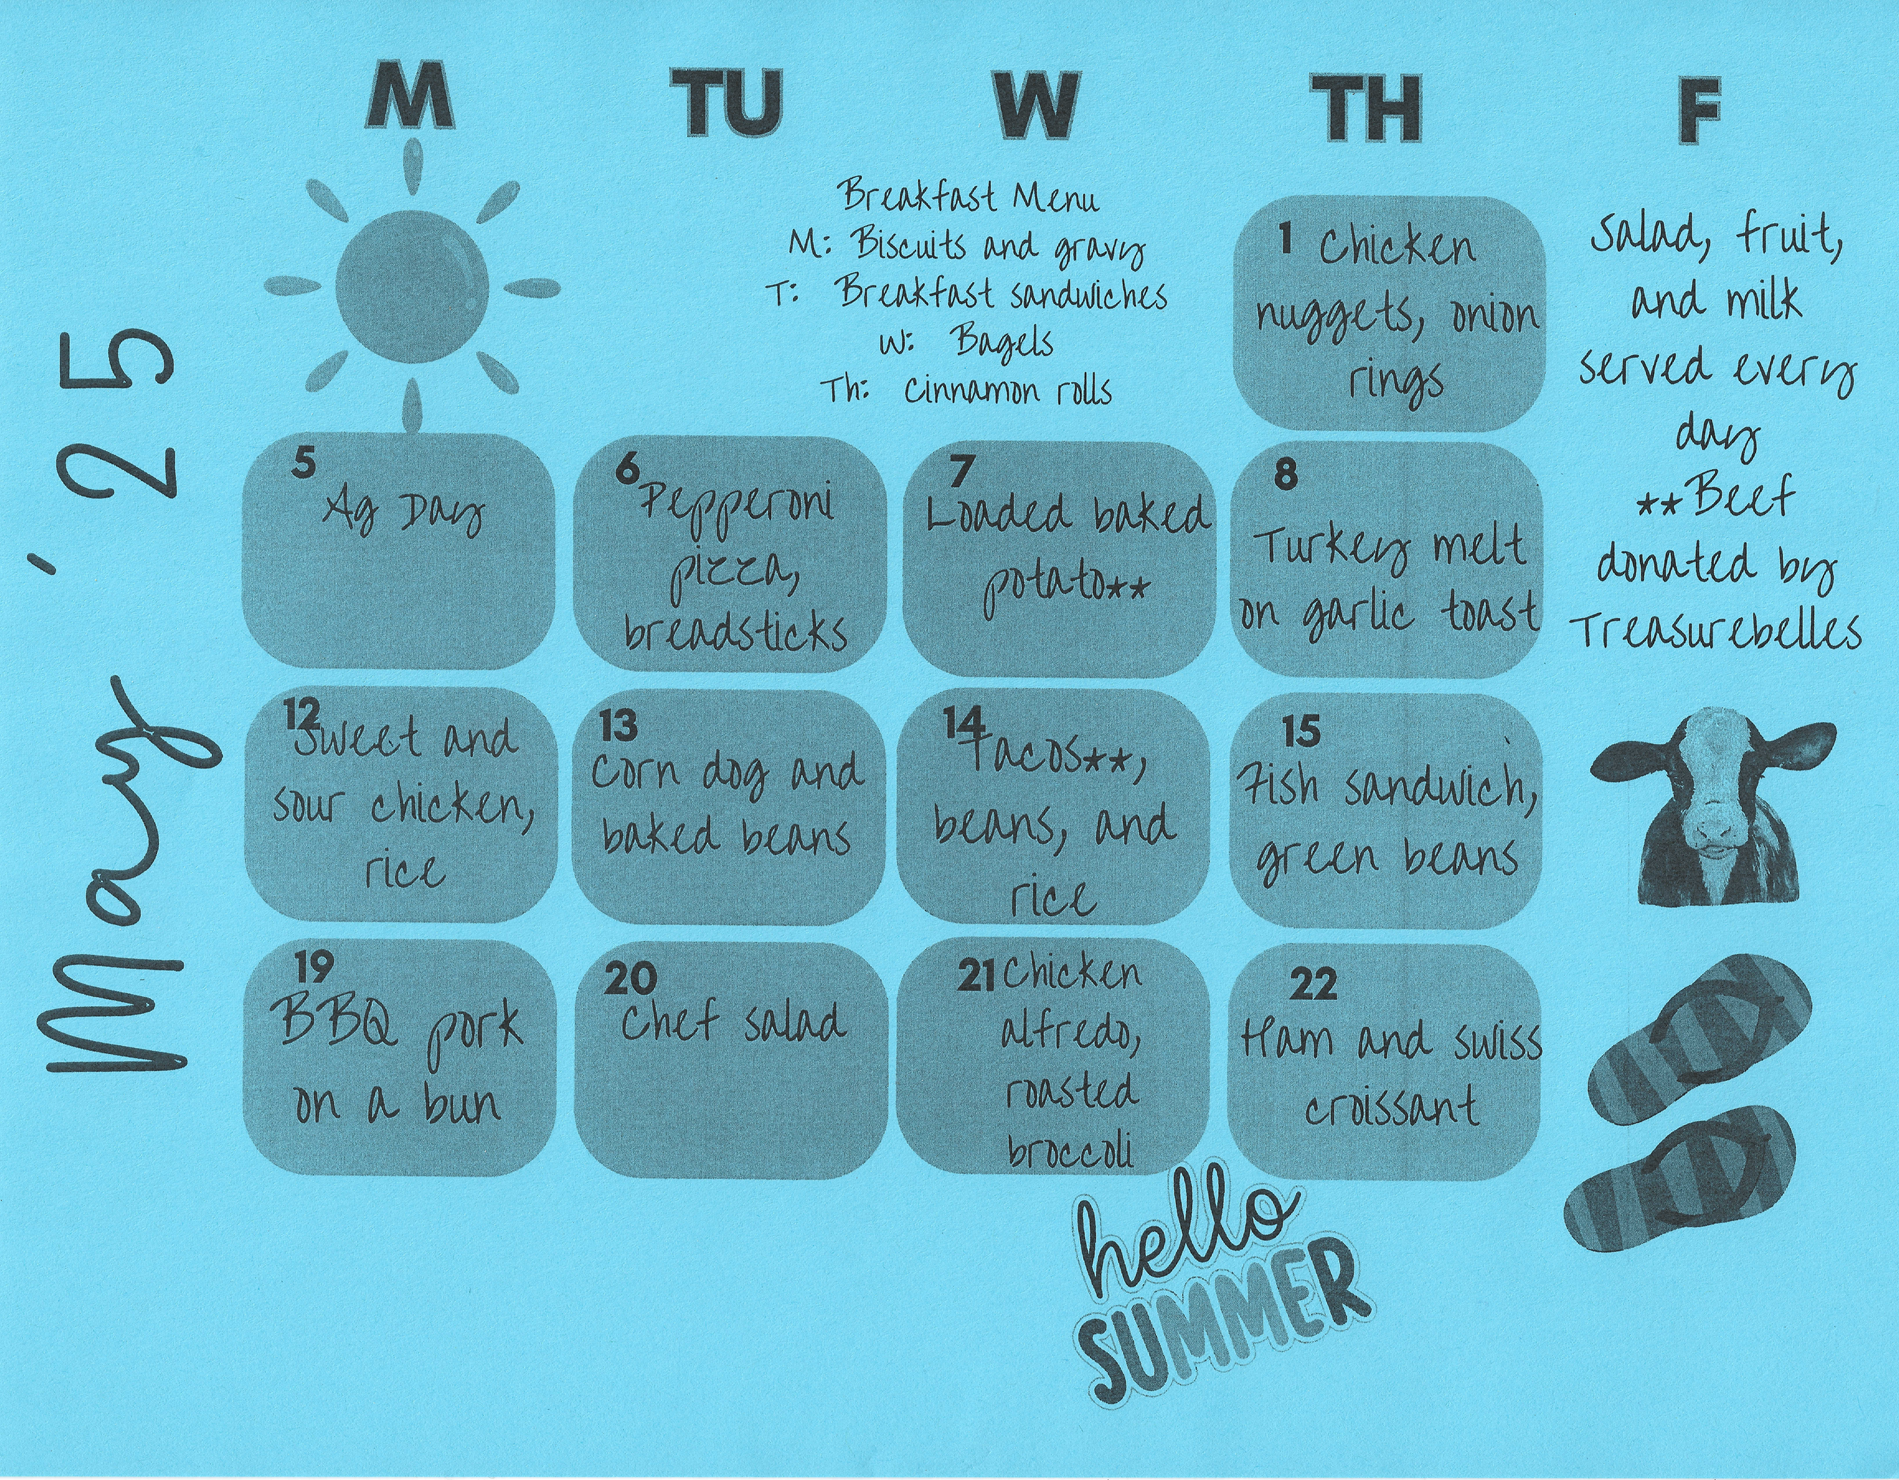 M TU W TH F
May '25
Breakfast Menu
M: Biscuits and gravy
T: Breakfast sandwiches
W: Bagels
Th: Cinnamon rolls
1 Chicken
nuggets, onion
rings
Salad, fruit,
and milk
served every
day
**Beef
donated by
Treasurebelles
5
Ag Day
6
Pepperoni
pizza,
breadsticks
7
Loaded baked
potato**
8
Turkey melt
on garlic toast
12
Sweet and
sour chicken,
rice
13
Corn dog and
baked beans
14
Tacos**,
beans, and
rice
15
Fish sandwich,
green beans
19
BBQ pork
on a bun
20
Chef salad
21 Chicken
alfredo,
roasted
broccoli
22
Ham and swiss
croissant
hello
SUMMER